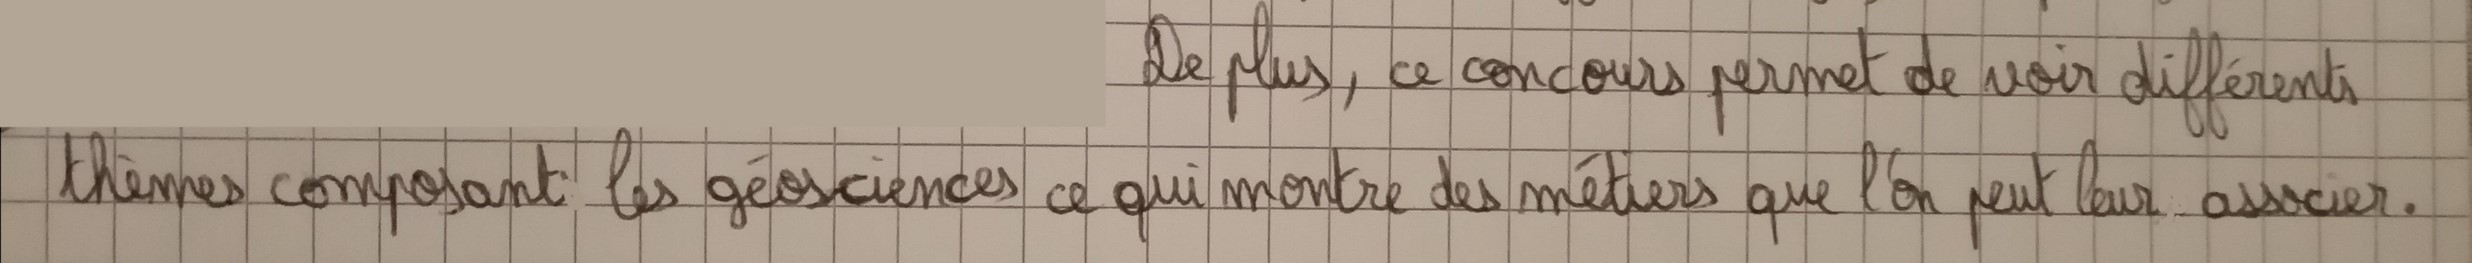 De plus, ce concours permet de voir différents
thèmes composant les géosciences ce qui montre des métiers que l'on peut leur associer.